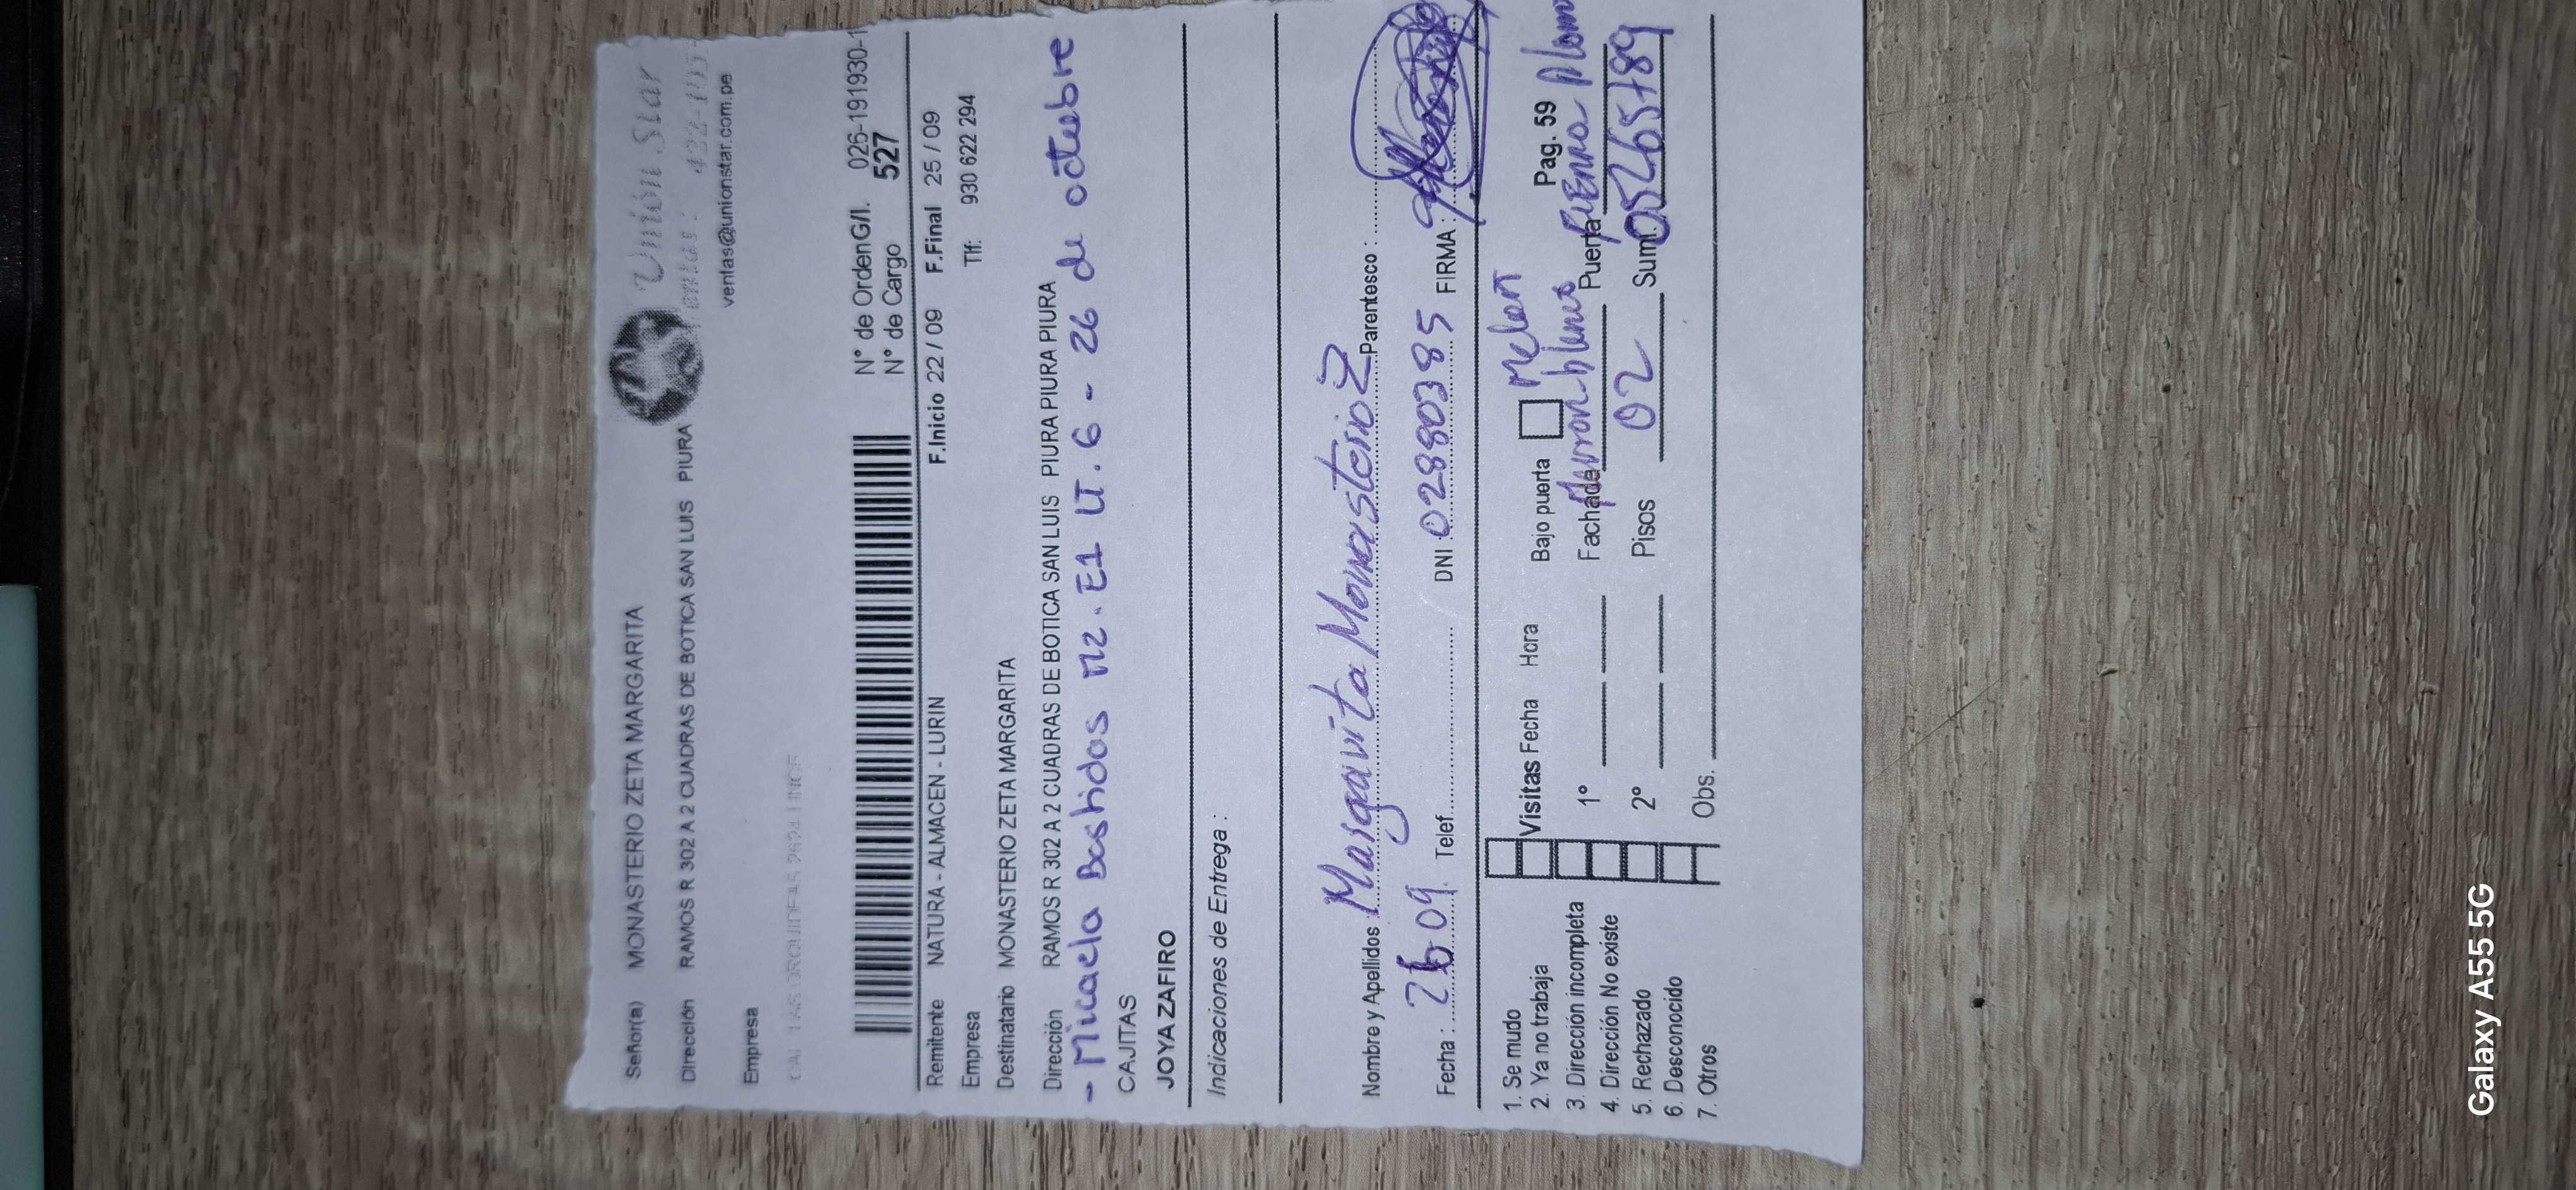 Unión Star
ventas@unionstar.com.pe
Señor(a) MONASTERIO ZETA MARGARITA
Dirección RAMOS R 302 A 2 CUADRAS DE BOTICA SAN LUIS PIURA
Empresa
N° de OrdenG/I. 026-191930-1
N° de Cargo 527
Remitente NATURA - ALMACEN - LURIN F.Inicio 22 / 09 F.Final 25 / 09
Empresa Tlf: 930 622 294
Destinatario MONASTERIO ZETA MARGARITA
Dirección RAMOS R 302 A 2 CUADRAS DE BOTICA SAN LUIS PIURA PIURA PIURA
- Micaela Bastidas Mz. E1 LT. 6 - 26 de octubre
CAJITAS
JOYA ZAFIRO
Indicaciones de Entrega :
Nombre y Apellidos Margarita Monasterio Z Parentesco :
Fecha : 26 09 Telef. DNI 02880385 FIRMA :
1. Se mudo
2. Ya no trabaja Visitas Fecha Hora Bajo puerta Pag. 59
3. Dirección incompleta 1° Fachada Marron-blanco Puerta
4. Direccion No existe
5. Rechazado 2° Pisos 02 Sum.
6. Desconocido
7. Otros Obs.
Galaxy A55 5G